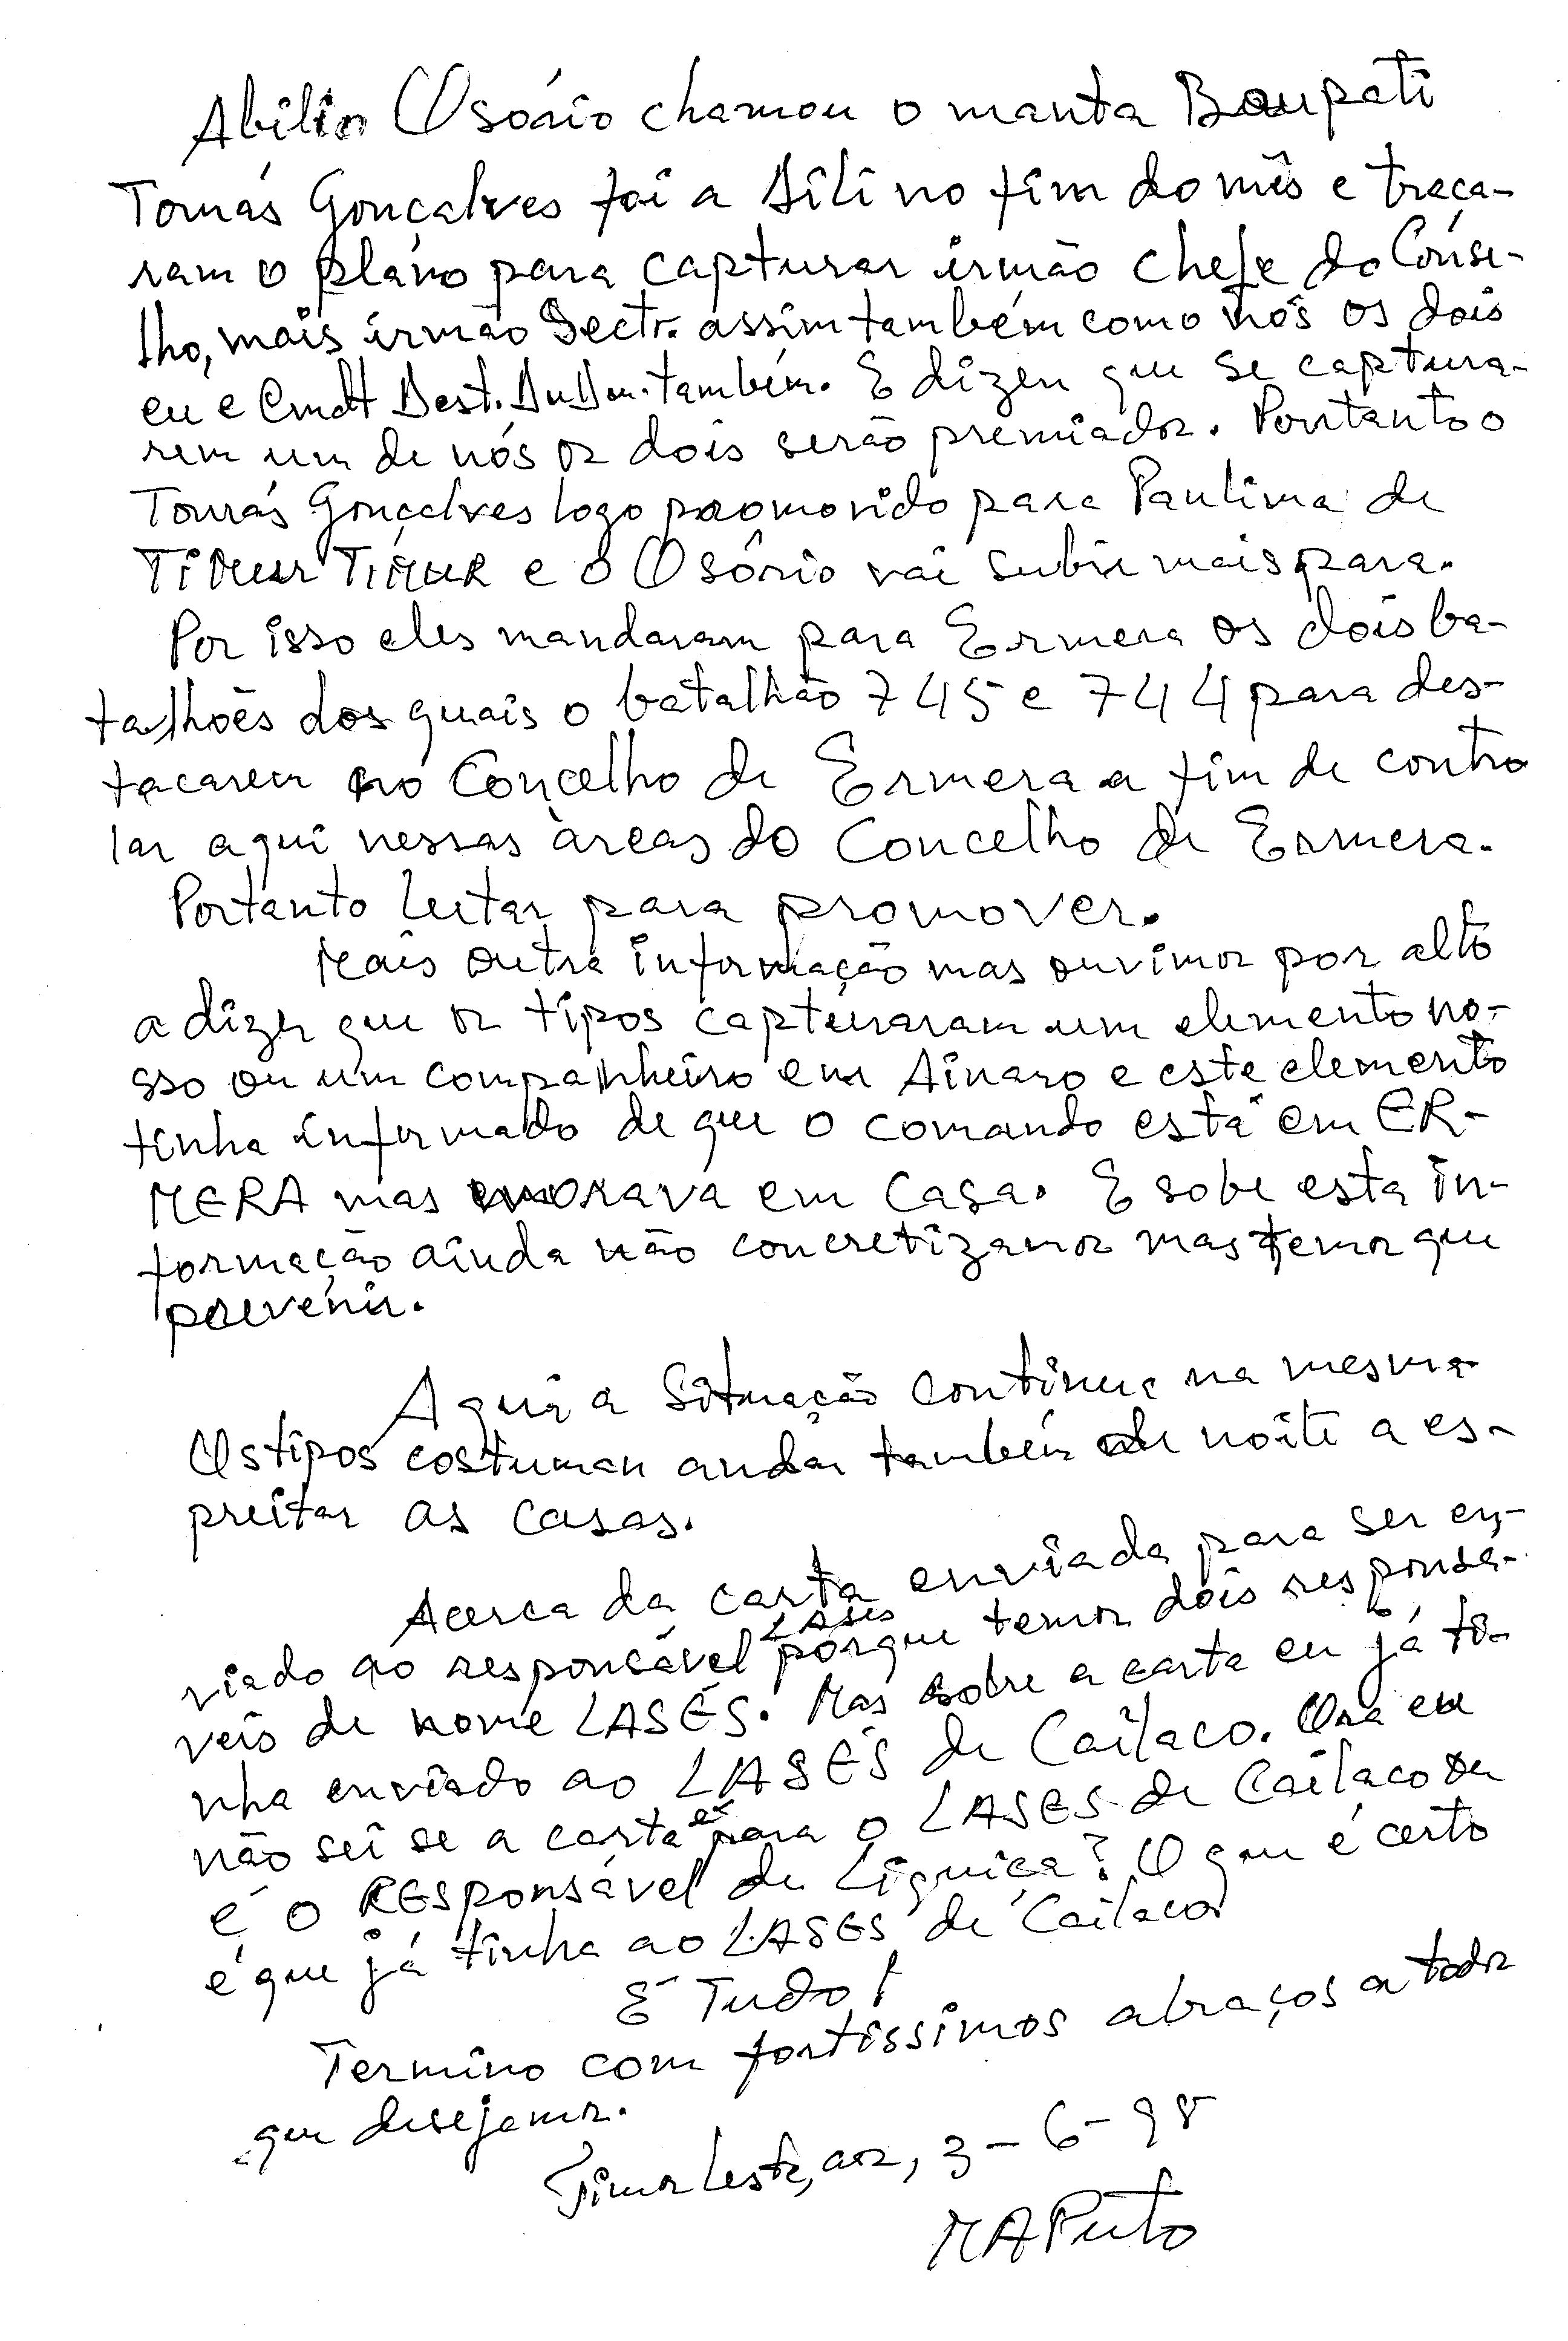 Abilio Osório chamou o manta Baupati
Tomás Gonçalves foi a Dili no fim do mês e traça-
ram o pláno para capturar irmão chefe do Conse-
lho, mais irmão Sectr. assim também como nós os dois
eu e Cmdt Dest. DuDu. também. E dizem que se captura-
rem um de nós os dois serão premiados. Portanto o
Tomás Gonçalves logo promovido para Paulima de
Timur Timur e o Osório vai subir mais para.
Por isso eles mandaram para Ermera os dois ba-
talhões dos quais o batalhão 745 e 744 para des-
tacarem no Concelho de Ermera a fim de contro
lar aqui nessas áreas do Concelho de Ermera.
Portanto lutar para promover.
Mais outra informação mas ouvimos por alto
a dizer que os tipos capturaram um elemento no-
sso ou um companheiro em Ainaro e este elemento
tinha informado de que o comando está em ER-
MERA mas morava em casa. E sobe esta in-
formação ainda não concretizamos mas temos que
prevenir.
Aqui a situação continua na mesma
Os tipos costumam andar também de noite a es-
preitar as casas.
Acerca da carta enviada para ser en-
viado ao responsável LASES porque temos dois responsá-
veis de nome LASÉS. Mas sobre a carta eu já ti-
nha enviado ao LASÉS de Cailaco. Ora eu
não sei se a carta é para o LASES de Cailaco ou
é o Responsável de Liquiça? O que é certo
é que já tinha ao LASES de Cailaco
É Tudo!
Termino com fortissimos abraços a todos
que desejamos.
Timor Leste, aos, 3-6-98
MAPuto